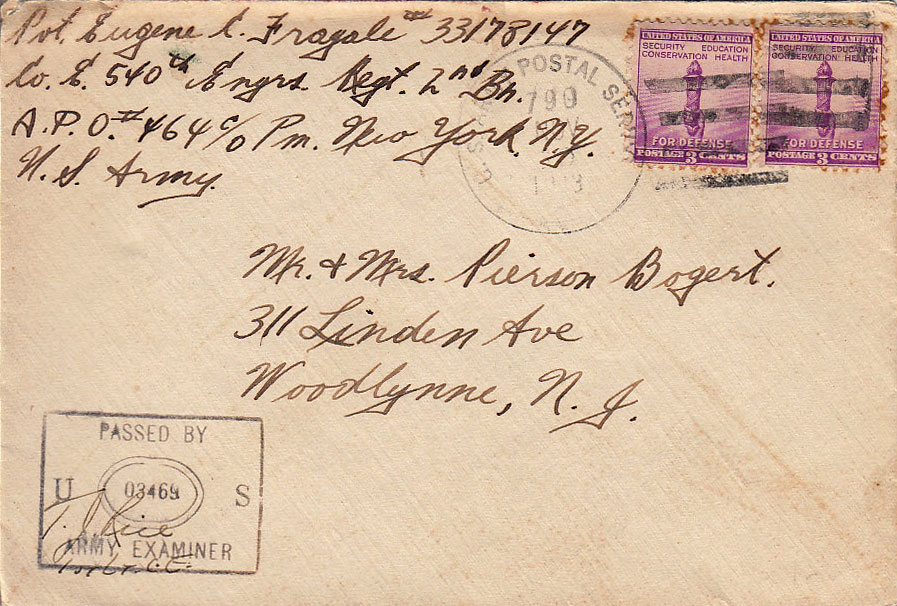 Pvt. Eugene C. Fragale # 33178147
Co. E. 540th Engrs. Regt. 2nd Bn.
A.P.O. # 464 c/o Pm. New York, N.Y.
U.S. Army.
POSTAL SER
790
UNITED STATES OF AMERICA
SECURITY EDUCATION
CONSERVATION HEALTH
FOR DEFENSE
POSTAGE 3 CENTS
UNITED STATES OF AMERICA
SECURITY EDUCATION
CONSERVATION HEALTH
FOR DEFENSE
POSTAGE 3 CENTS
Mr. & Mrs. Pierson Bogert.
311 Linden Ave
Woodlynne, N. J.
PASSED BY
U 03469 S
ARMY EXAMINER